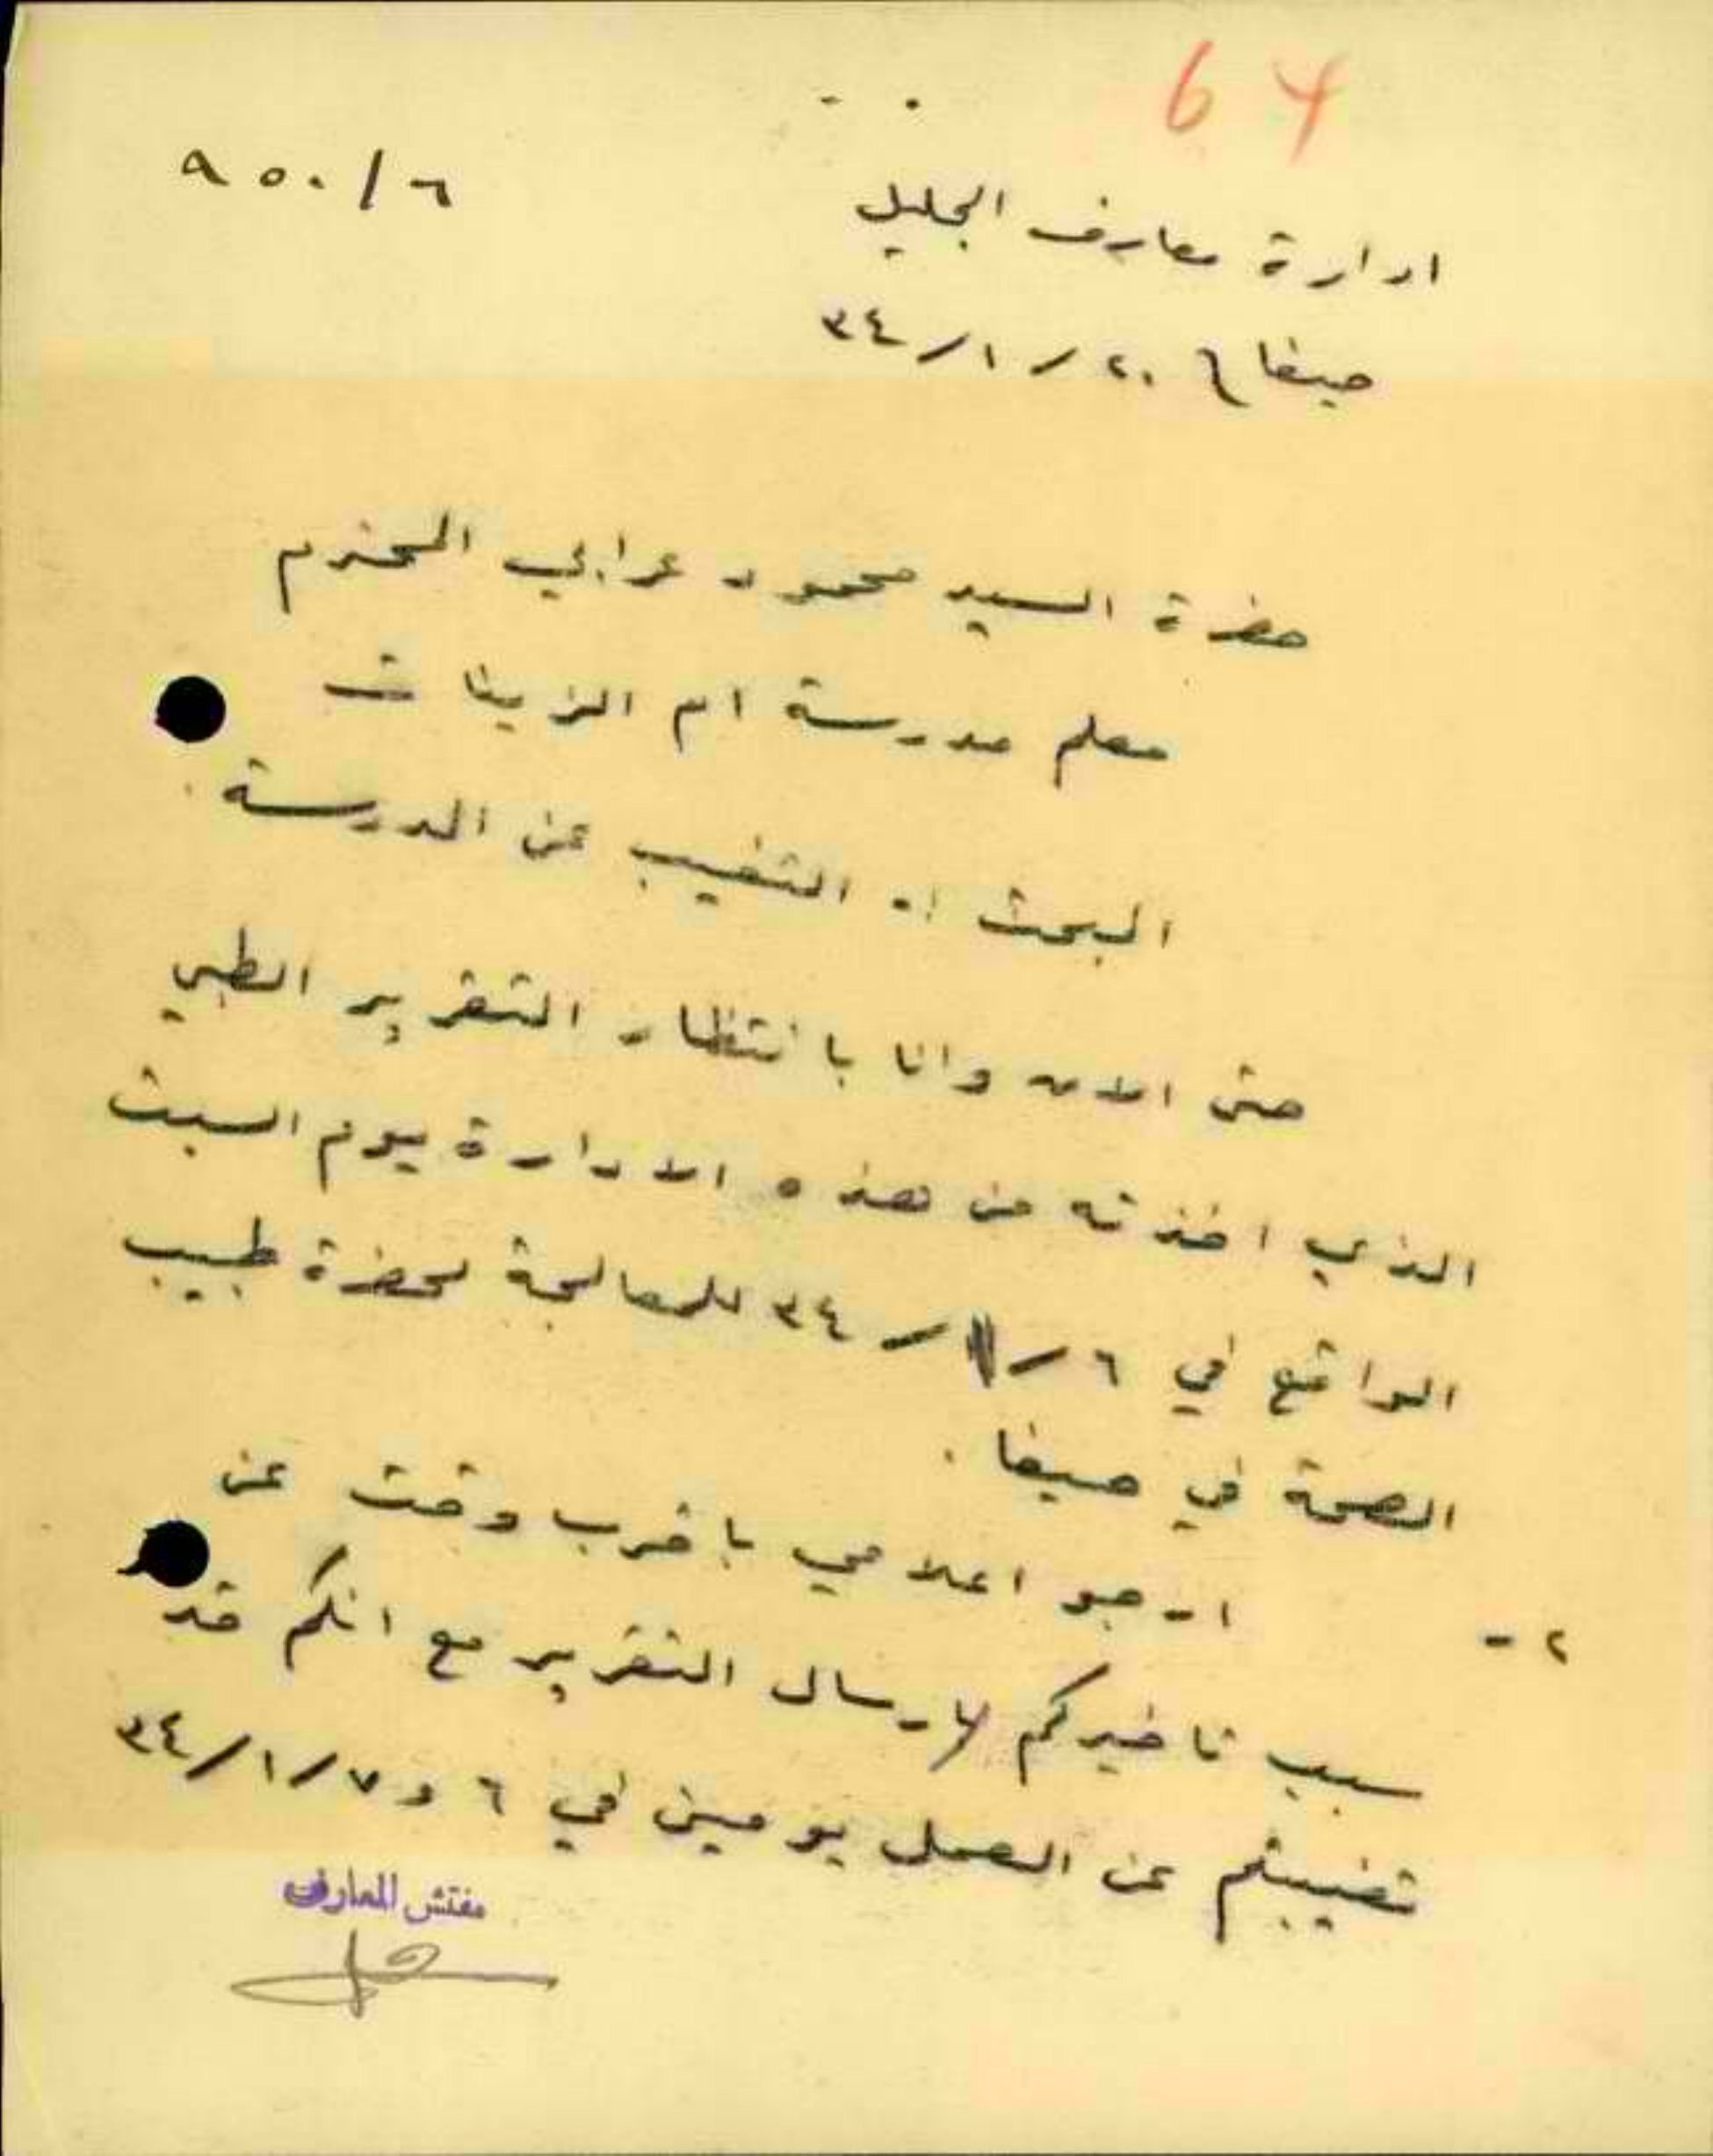 64
٦/٩٥٠
ادارة معارف الجليل
حيفا في ٢٠/١/٣٤
حضرة السيد محمود عرابي المحترم
معلم مدرسة ام الزينات
البحث : التغيب عن المدرسة .
حتى الان وانا بانتظار التقرير الطبي
الذي اخذته من هذه الادارة يوم السبت
الواقع في ٦/١/٣٤ للمعالجة لحضرة طبيب
الصحة في حيفا .
٢- ارجو اعلامي باقرب وقت عن
سبب تاخيركم لارسال التقرير مع انكم قد
تغيبتم عن العمل يومين في ٦ و ٧/١/٣٤
مفتش المعارف